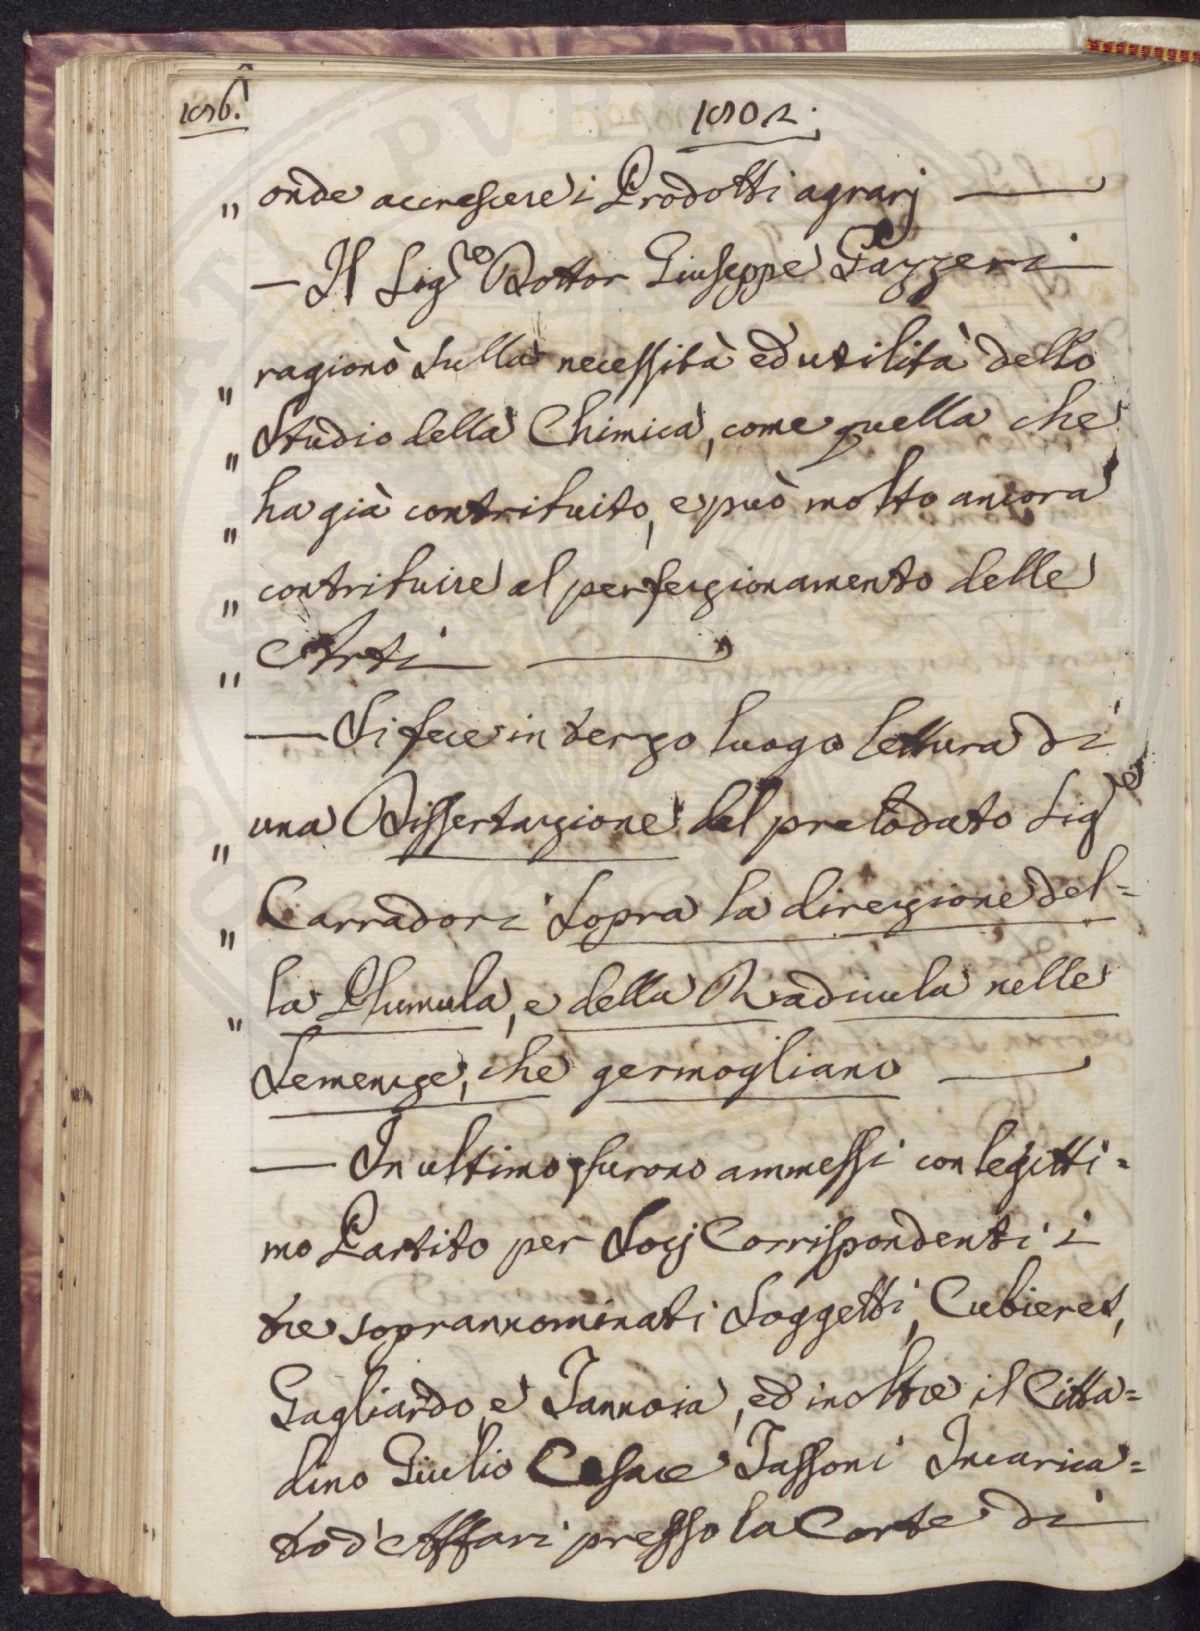 186.
1802.
„ onde accrescere i Prodotti agrarj —
— Il Sig.ro Dottor Giuseppe Gazzeri
„ ragionò sulla necessità ed utilità dello
„ Studio della Chimica, come quella che
„ ha già contribuito, e può molto ancora
„ contribuire al perfezionamento delle
„ Arti —
— Si fece in terzo luogo lettura di
„ una Dissertazione del prelodato Sig.re
„ Carradori sopra la direzione del=
„ la Plumula, e della Radicula nelle
Semenze, che germogliano —
— In ultimo furono ammessi con legitti=
mo Partito per Socj Corrispondenti i
tre soprannominati Soggetti, Cubieres,
Gagliardo, e Tannoia, ed inoltre il Citta=
dino Giulio Cesare Tassoni Incarica=
to d'Affari presso la Corte di